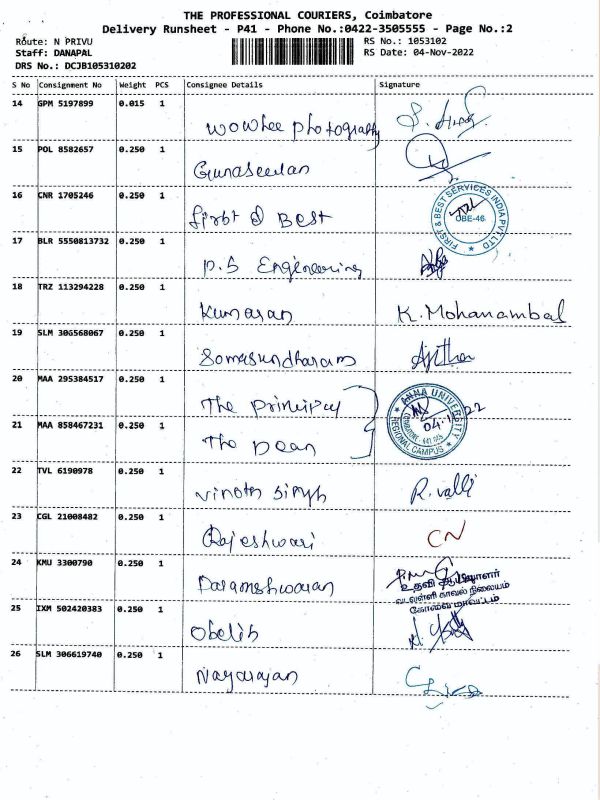 THE PROFESSIONAL COURIERS, Coimbatore
Delivery Runsheet - P41 - Phone No.:0422-3505555 - Page No.:2
Route: N PRIVU RS No.: 1053102
Staff: DANAPAL RS Date: 04-Nov-2022
DRS No.: DCJB105310202
S No Consignment No Weight PCS Consignee Details Signature
14 GPM 5197899 0.015 1
wowhee photography
15 POL 8582657 0.250 1
Gunaseelan
16 CNR 1705246 0.250 1
first & Best
FIRST & BEST SERVICES INDIA PVT LTD
CBE-46
17 BLR 5550813732 0.250 1
P.S Engineering
18 TRZ 113294228 0.250 1
Kumaran K. Mohanambal
19 SLM 306568067 0.250 1
Somasundharam
20 MAA 295384517 0.250 1
The principal
ANNA UNIVERSITY
REGIONAL CAMPUS
21 MAA 858467231 0.250 1
The Dean
22 TVL 6190978 0.250 1
vinoth singh R. valli
23 CGL 21008482 0.250 1
Rajeshwari CN
24 KMU 3300790 0.250 1
Parameshwaran
உதவி ஆய்வாளர்
வடவள்ளி காவல் நிலையம்
கோவை மாவட்டம்
25 IXM 502420383 0.250 1
Obelih
26 SLM 306619740 0.250 1
Nagarajan